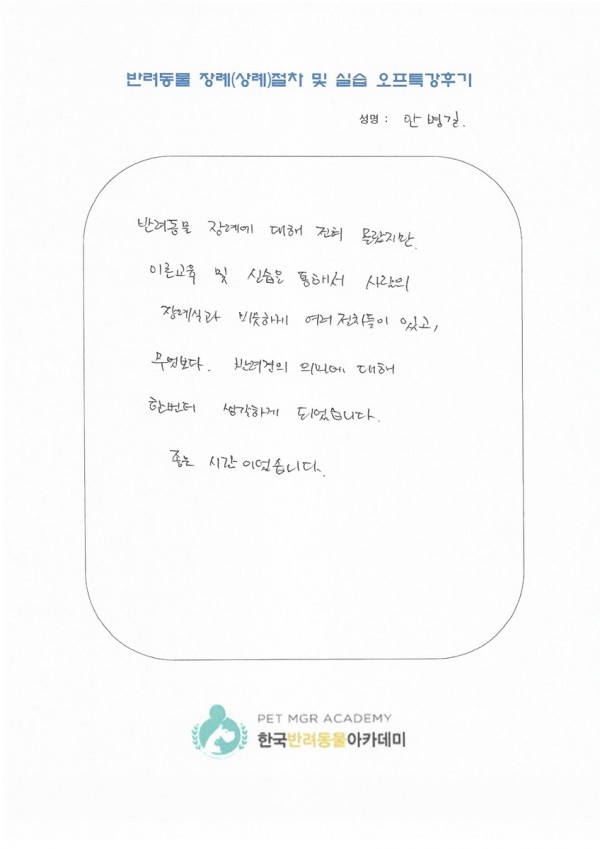 반려동물 장례(상례)절차 및 실습 오프특강후기
성명 : 안병길.
반려동물 장례에 대해 전혀 몰랐지만
이론교육 및 실습을 통해서 사람의
장례식과 비슷하게 여러 절차들이 있고,
무엇보다. 반려견의 의미에 대해
한번더 생각하게 되었습니다.
좋은 시간이었습니다.
PET MGR ACADEMY
한국반려동물아카데미